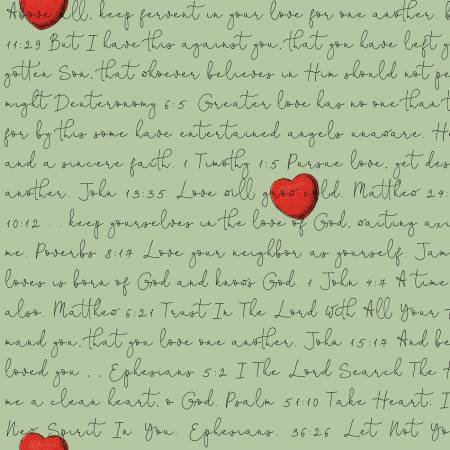 Above all, keep fervent in your love for one another. b
11:29 But I have this against you, that you have left y
gotten Son, that whoever believes in Him should not pe
might Deuteronomy 6:5. Greater love has no one than t
for by this some have entertained angels unaware. He
and a sincere faith. 1 Timothy 1:5 Pursue love, yet des
another. John 13:35 Love will grow cold. Matthew 24:
10:12 . . keep yourselves in the love of God, waiting axi
me. Poverbs 8:17 Love your neighbor as yourself. Jam
loves is born of God and knows God. 1 John 4:7 A time
also. Matthew 6:21 Trust In The Lord With All Your
mand you, that you love one another. John 15:17 And be
loved you . . Ephesians 5:2 I The Lord Search The
me a clean heart, o God. Psalm 51:10 Take Heart; I
New Spirit In You. Ephesians. 36:26 Let Not Yo